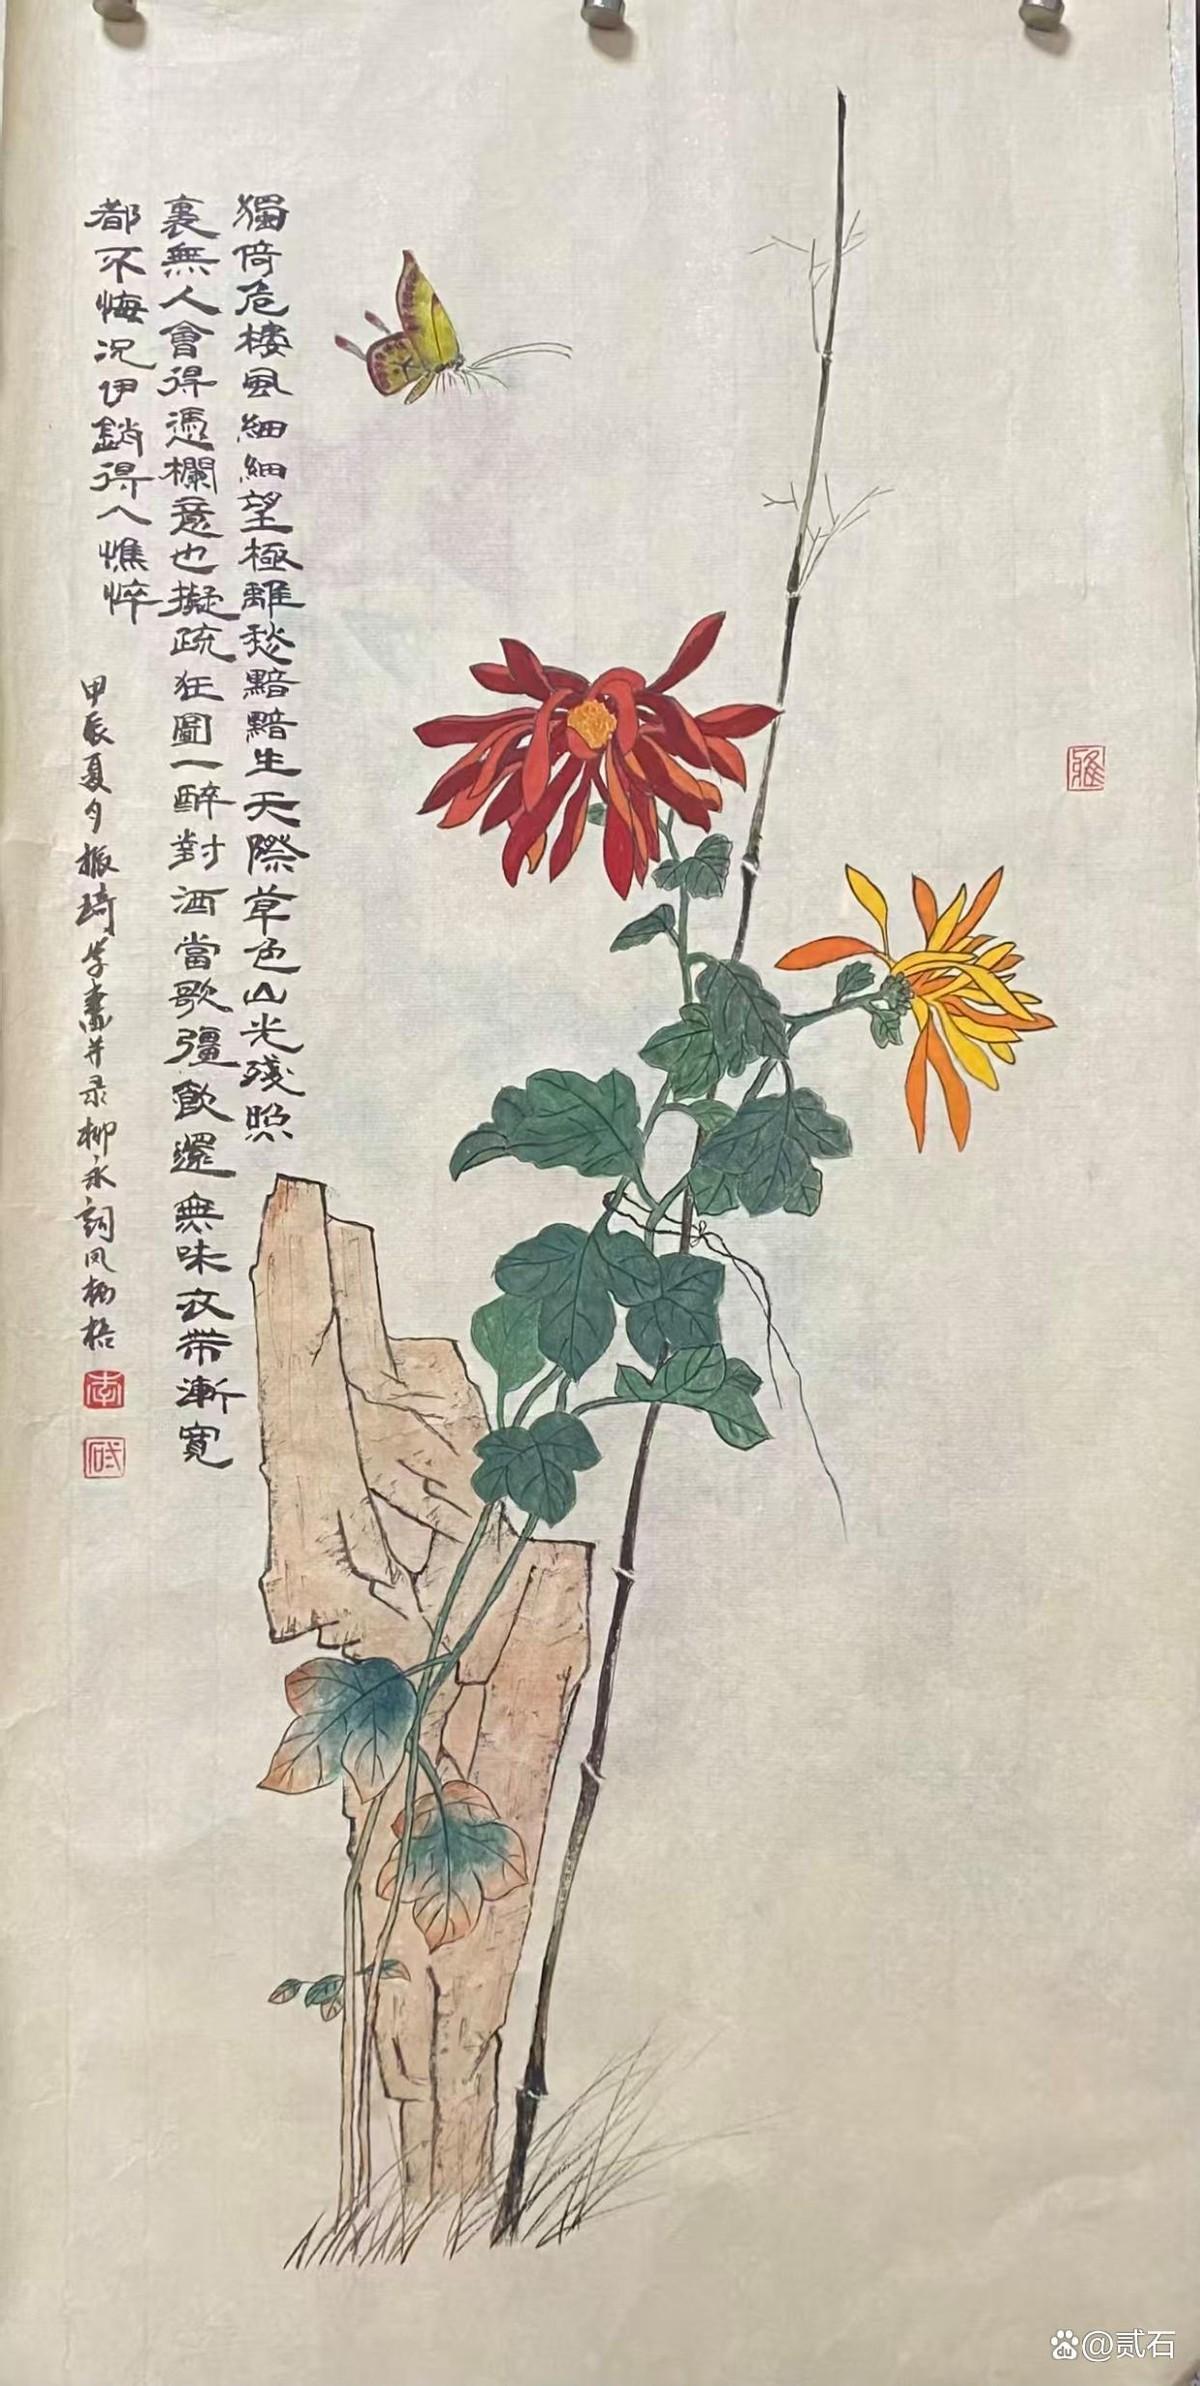 獨倚危樓風細細望極離愁黯黯生天際草色山光殘照
裏無人會得憑欄意也擬疏狂圖一醉對酒當歌彊飲還無味衣帶漸寬
都不悔況伊銷得人憔悴
甲辰夏夕振琦学畫并录柳永詞凤栖梧
@贰石